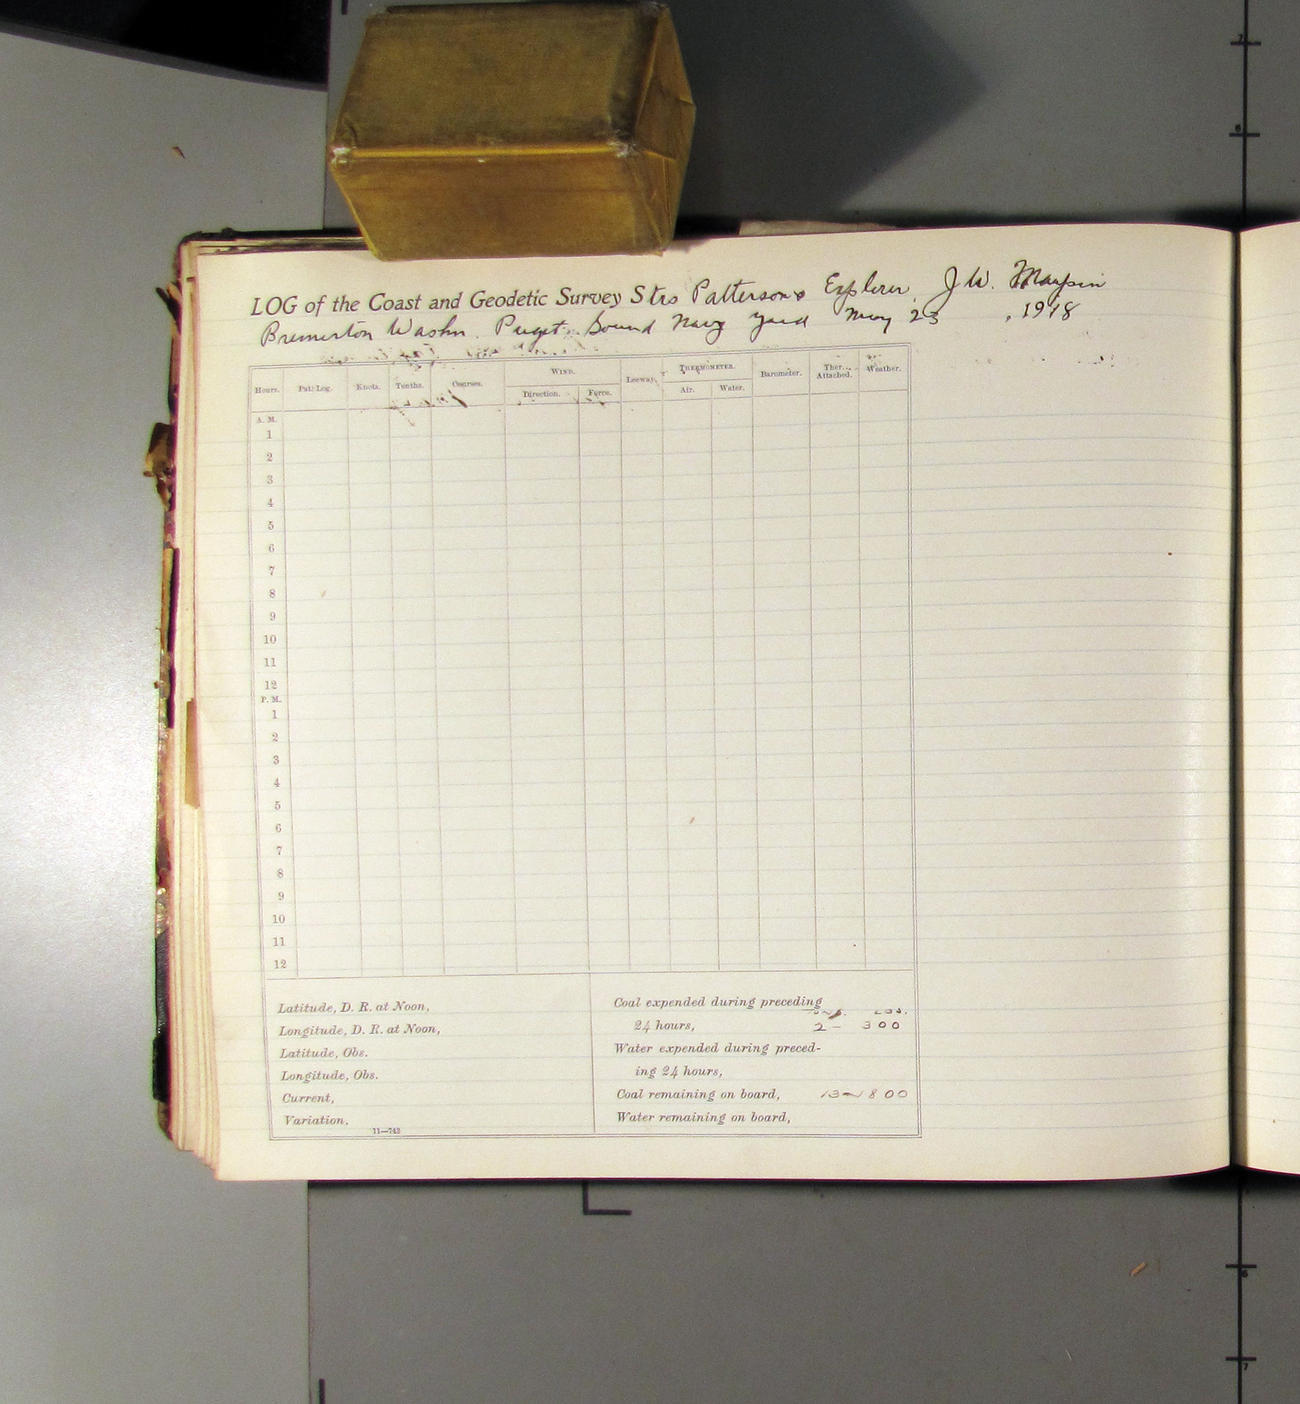 LOG of the Coast and Geodetic Survey Strs Pattersons Explorer, J. W. Maupin
Bremerton Washn. Puget Sound Navy Yard May 23, 1918
Hours. Pat. Log. Knots. Tenths. Courses. WIND. Leeway. THERMOMETER. Barometer. Ther. Attached. Weather.
Direction. Force. Air. Water.
A. M.
1
2
3
4
5
6
7
8
9
10
11
12
P. M.
1
2
3
4
5
6
7
8
9
10
11
12
Latitude, D. R. at Noon,
Longitude, D. R. at Noon,
Latitude, Obs.
Longitude, Obs.
Current,
Variation,
11—742
Coal expended during preceding
24 hours, 2 - 300
Water expended during preced-
ing 24 hours,
Coal remaining on board, 13 ~ 800
Water remaining on board,
7
8
6
7